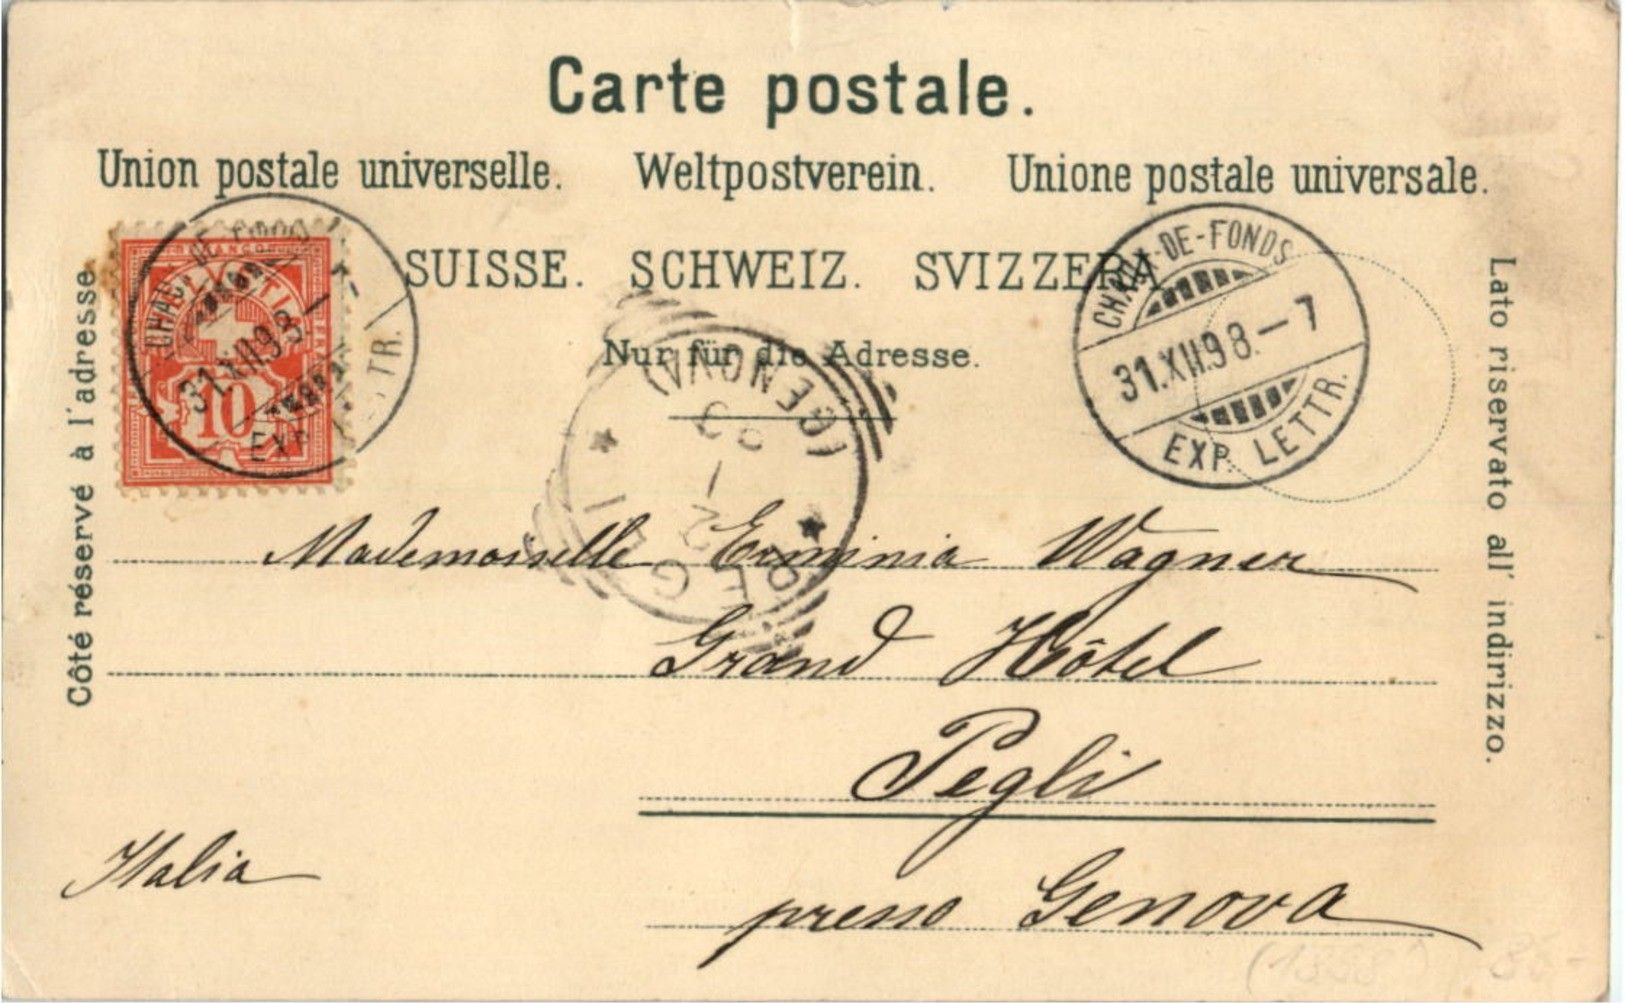 Carte postale.
Union postale universelle. Weltpostverein. Unione postale universale.
SUISSE. SCHWEIZ. SVIZZERA.
Nur für die Adresse.
Côté réservé à l'adresse
Lato riservato all' indirizzo.
FRANCO
10
CHAUX-DE-FONDS
31.XII.98.-7
EXP. LETTR.
CHAUX-DE-FONDS
31.XII.98.-7
EXP. LETTR.
PEGLI
(GENOVA)
Mademoiselle Erminia Wagner
Grand Hôtel
Pegli
presso Genova
Italia